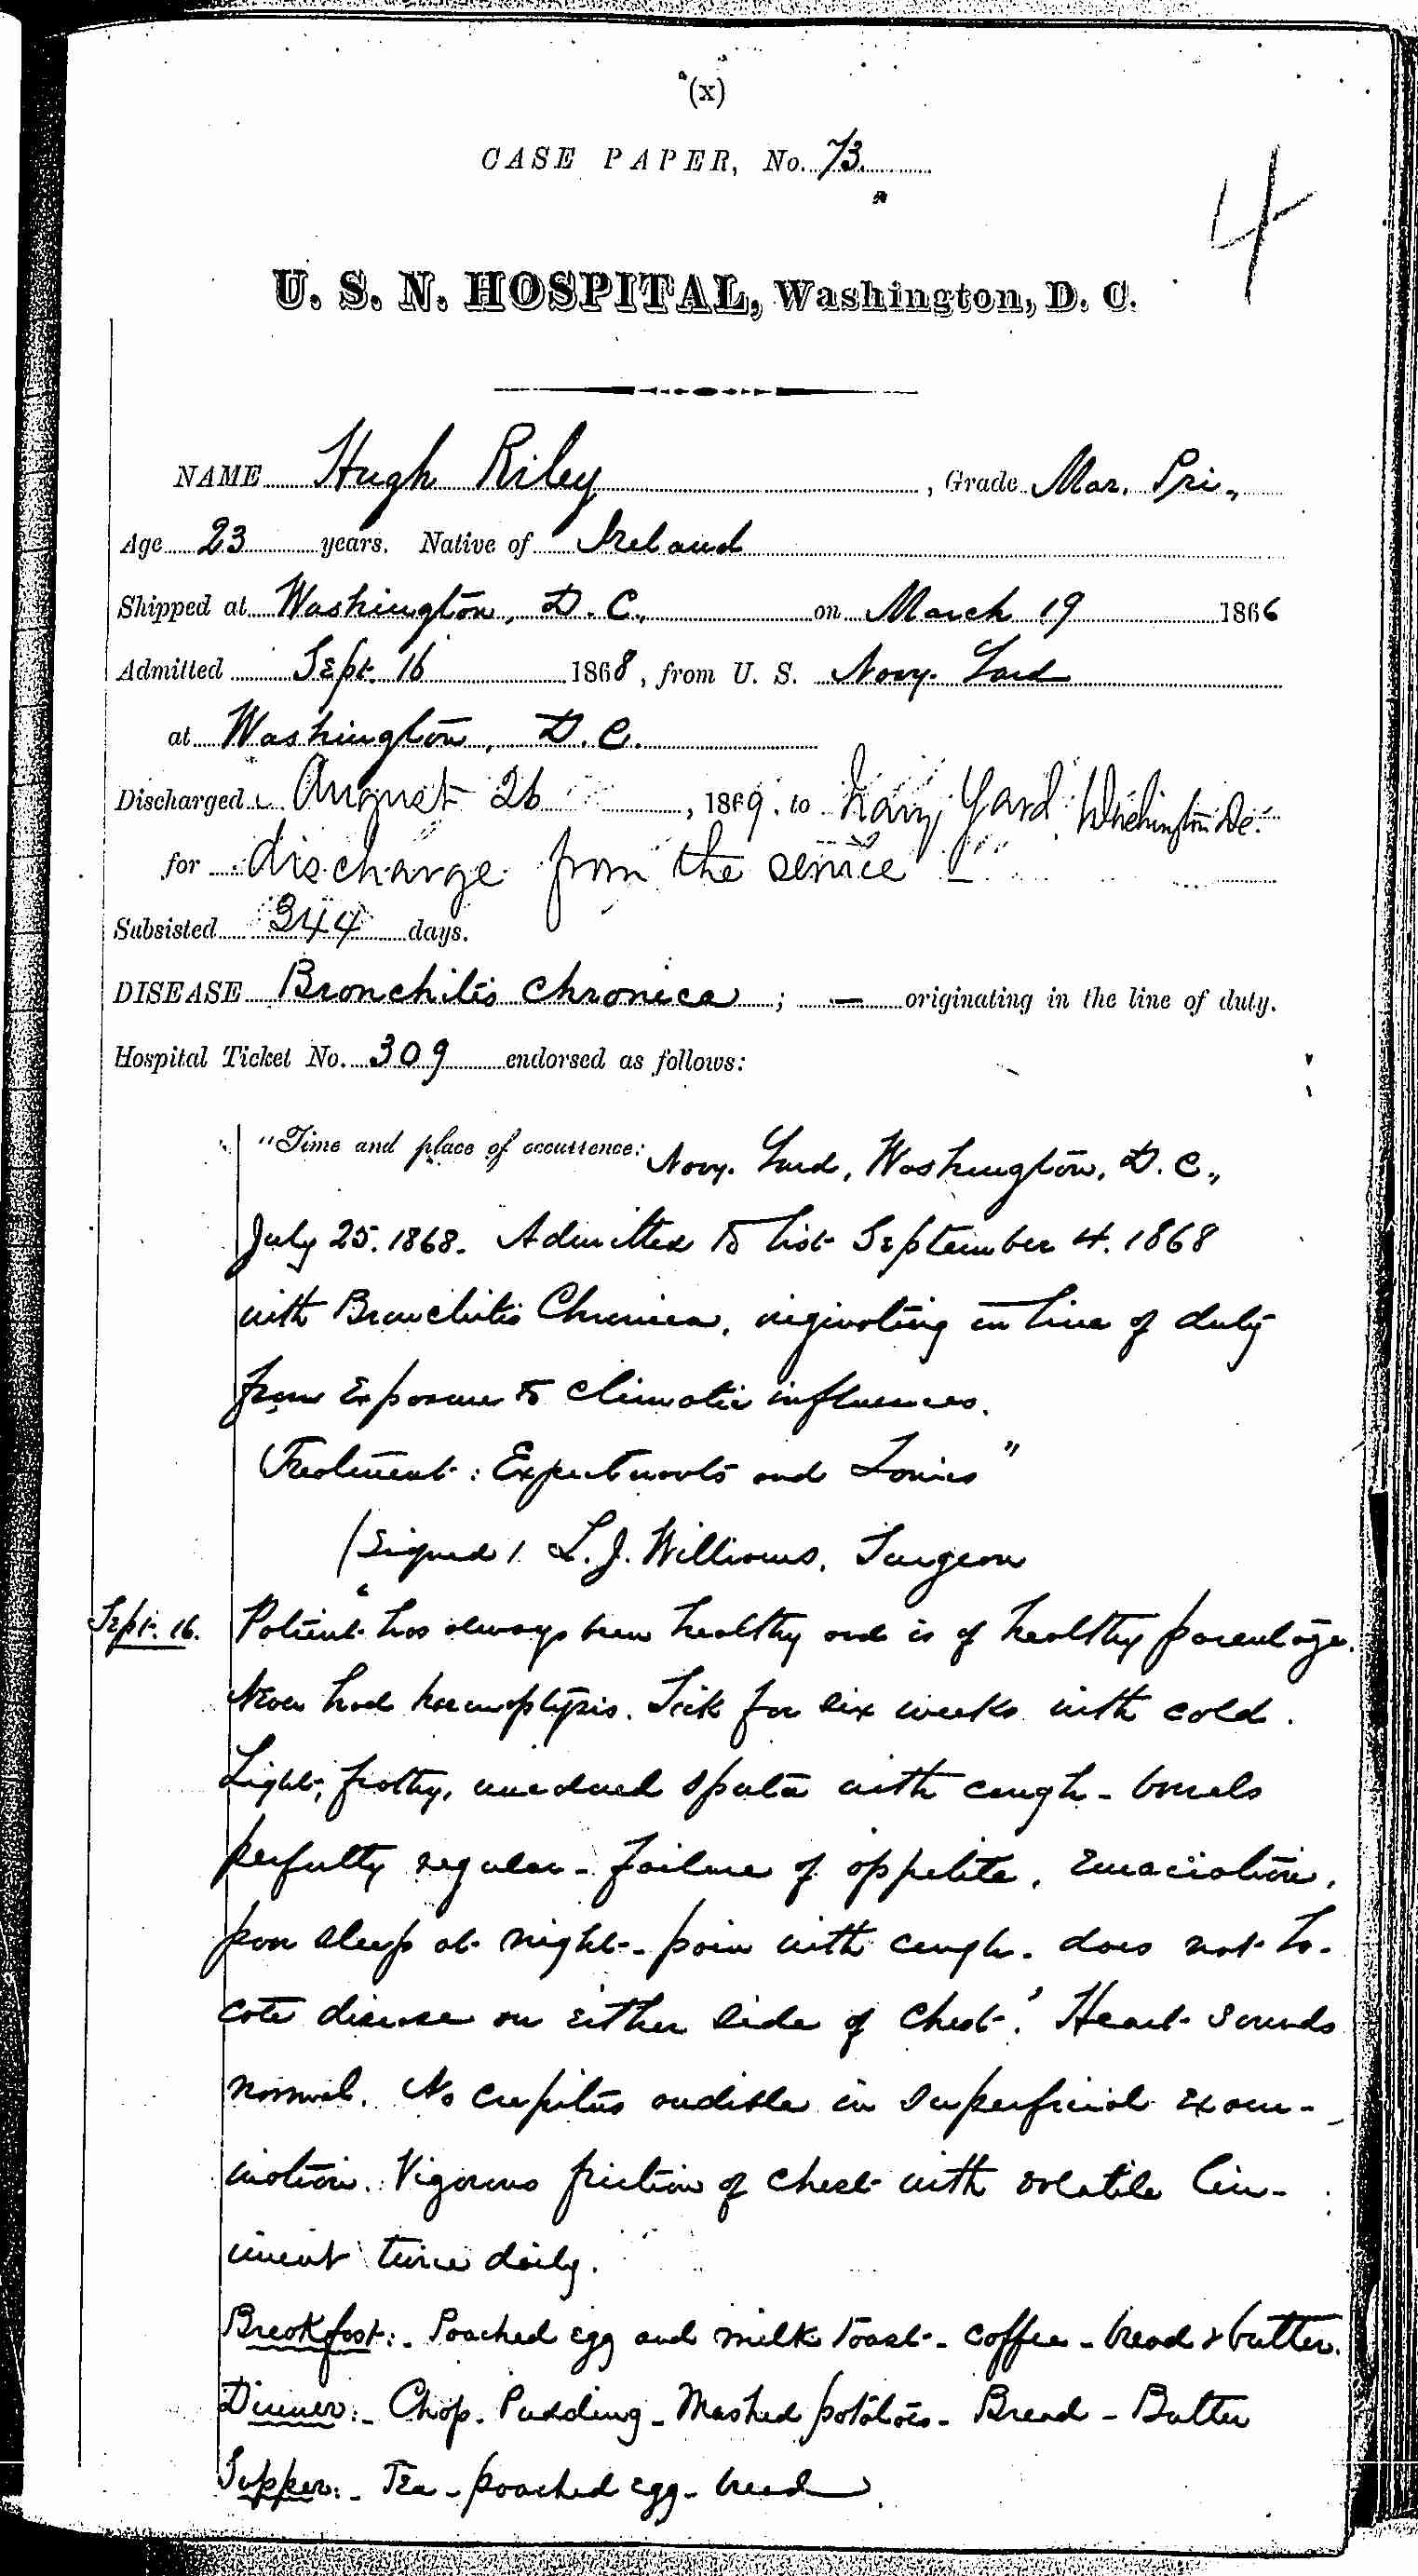 (x)
CASE PAPER, No. 73.
4
U. S. N. HOSPITAL, Washington, D. C.
NAME Hugh Riley, Grade Mar. Pri.,
Age 23 years. Native of Ireland
Shipped at Washington, D. C., on March 19 1866
Admitted Sept. 16 1868, from U. S. Navy Yard
at Washington, D. C.
Discharged August 26, 1869. to Navy Yard Washington DC.
for discharge from the service
Subsisted 344 days.
DISEASE Bronchitis Chronica; — originating in the line of duty.
Hospital Ticket No. 309 endorsed as follows:
"Time and place of occurrence: Navy Yard, Washington, D. C.,
July 25. 1868. Admitted to list September 4. 1868
with Bronchitis Chronica, originating in line of duty
from Exposure to climatic influences.
Treatment: Expectorants and Tonics"
(Signed). L. J. Williams, Surgeon
Sept. 16. Patient has always been healthy and is of healthy parentage.
Never had haemoptysis. Sick for six weeks with cold.
Light, frothy, sputa with cough - bowels
perfectly regular - failure of appetite, Emaciation,
poor sleep at night - pain with cough - does not lo-
cate disease on either side of chest. Heart sounds
normal. No crepitus audible in superficial exam-
ination. Vigorous friction of chest with volatile lin-
iment twice daily.
Breakfast: - Poached egg and milk toast - coffee - bread & butter.
Dinner: - Chop - Pudding - Mashed potatoes - Bread - Butter
Supper: - Tea - poached egg - bread.